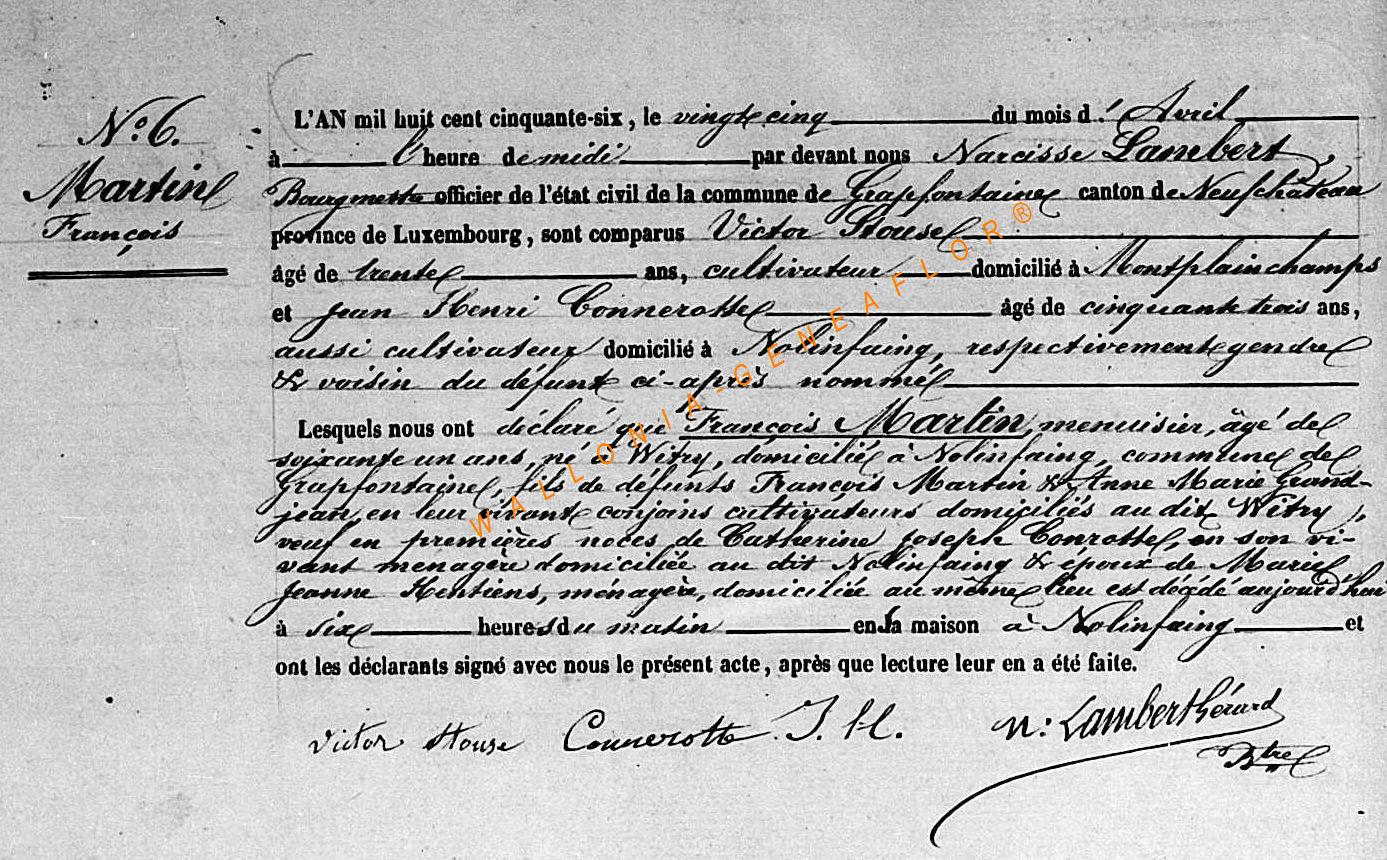 N.º 6.
Martin
François
L'AN mil huit cent cinquante-six, le vingt cinq du mois d'Avril
à l'heure de midi par devant nous Narcisse Lambert,
Bourgmestre officier de l'état civil de la commune de Grapfontaine canton de Neufchâteau
province de Luxembourg, sont comparus Victor Stouse
âgé de trente ans, cultivateur domicilié à Montplainchamps
et Jean Henri Connerotte âgé de cinquante trois ans,
aussi cultivateur domicilié à Nolinfaing, respectivement gendre
& voisin du défunt ci-après nommé
Lesquels nous ont déclaré que François Martin, menuisier, âgé de
soixante un ans, né à Witry, domicilié à Nolinfaing, commune de
Grapfontaine, fils de défunts François Martin & Anne Marie Grand-
jean, en leur vivant conjoins cultivateurs domiciliés au dit Witry,
veuf en premières noces de Catherine Joseph Conrotte, en son vi-
vant menagère domiciliée au dit Nolinfaing & époux de Marie
Jeanne Hentiens, ménagère, domiciliée au même lieu est décédé aujourd'hui
à six heures du matin en sa maison à Nolinfaing et
ont les déclarants signé avec nous le présent acte, après que lecture leur en a été faite.
Victor Stouse Connerotte J. H. N: Lambert Gérard
Btre
WALLONIA-GENEAFLOR®